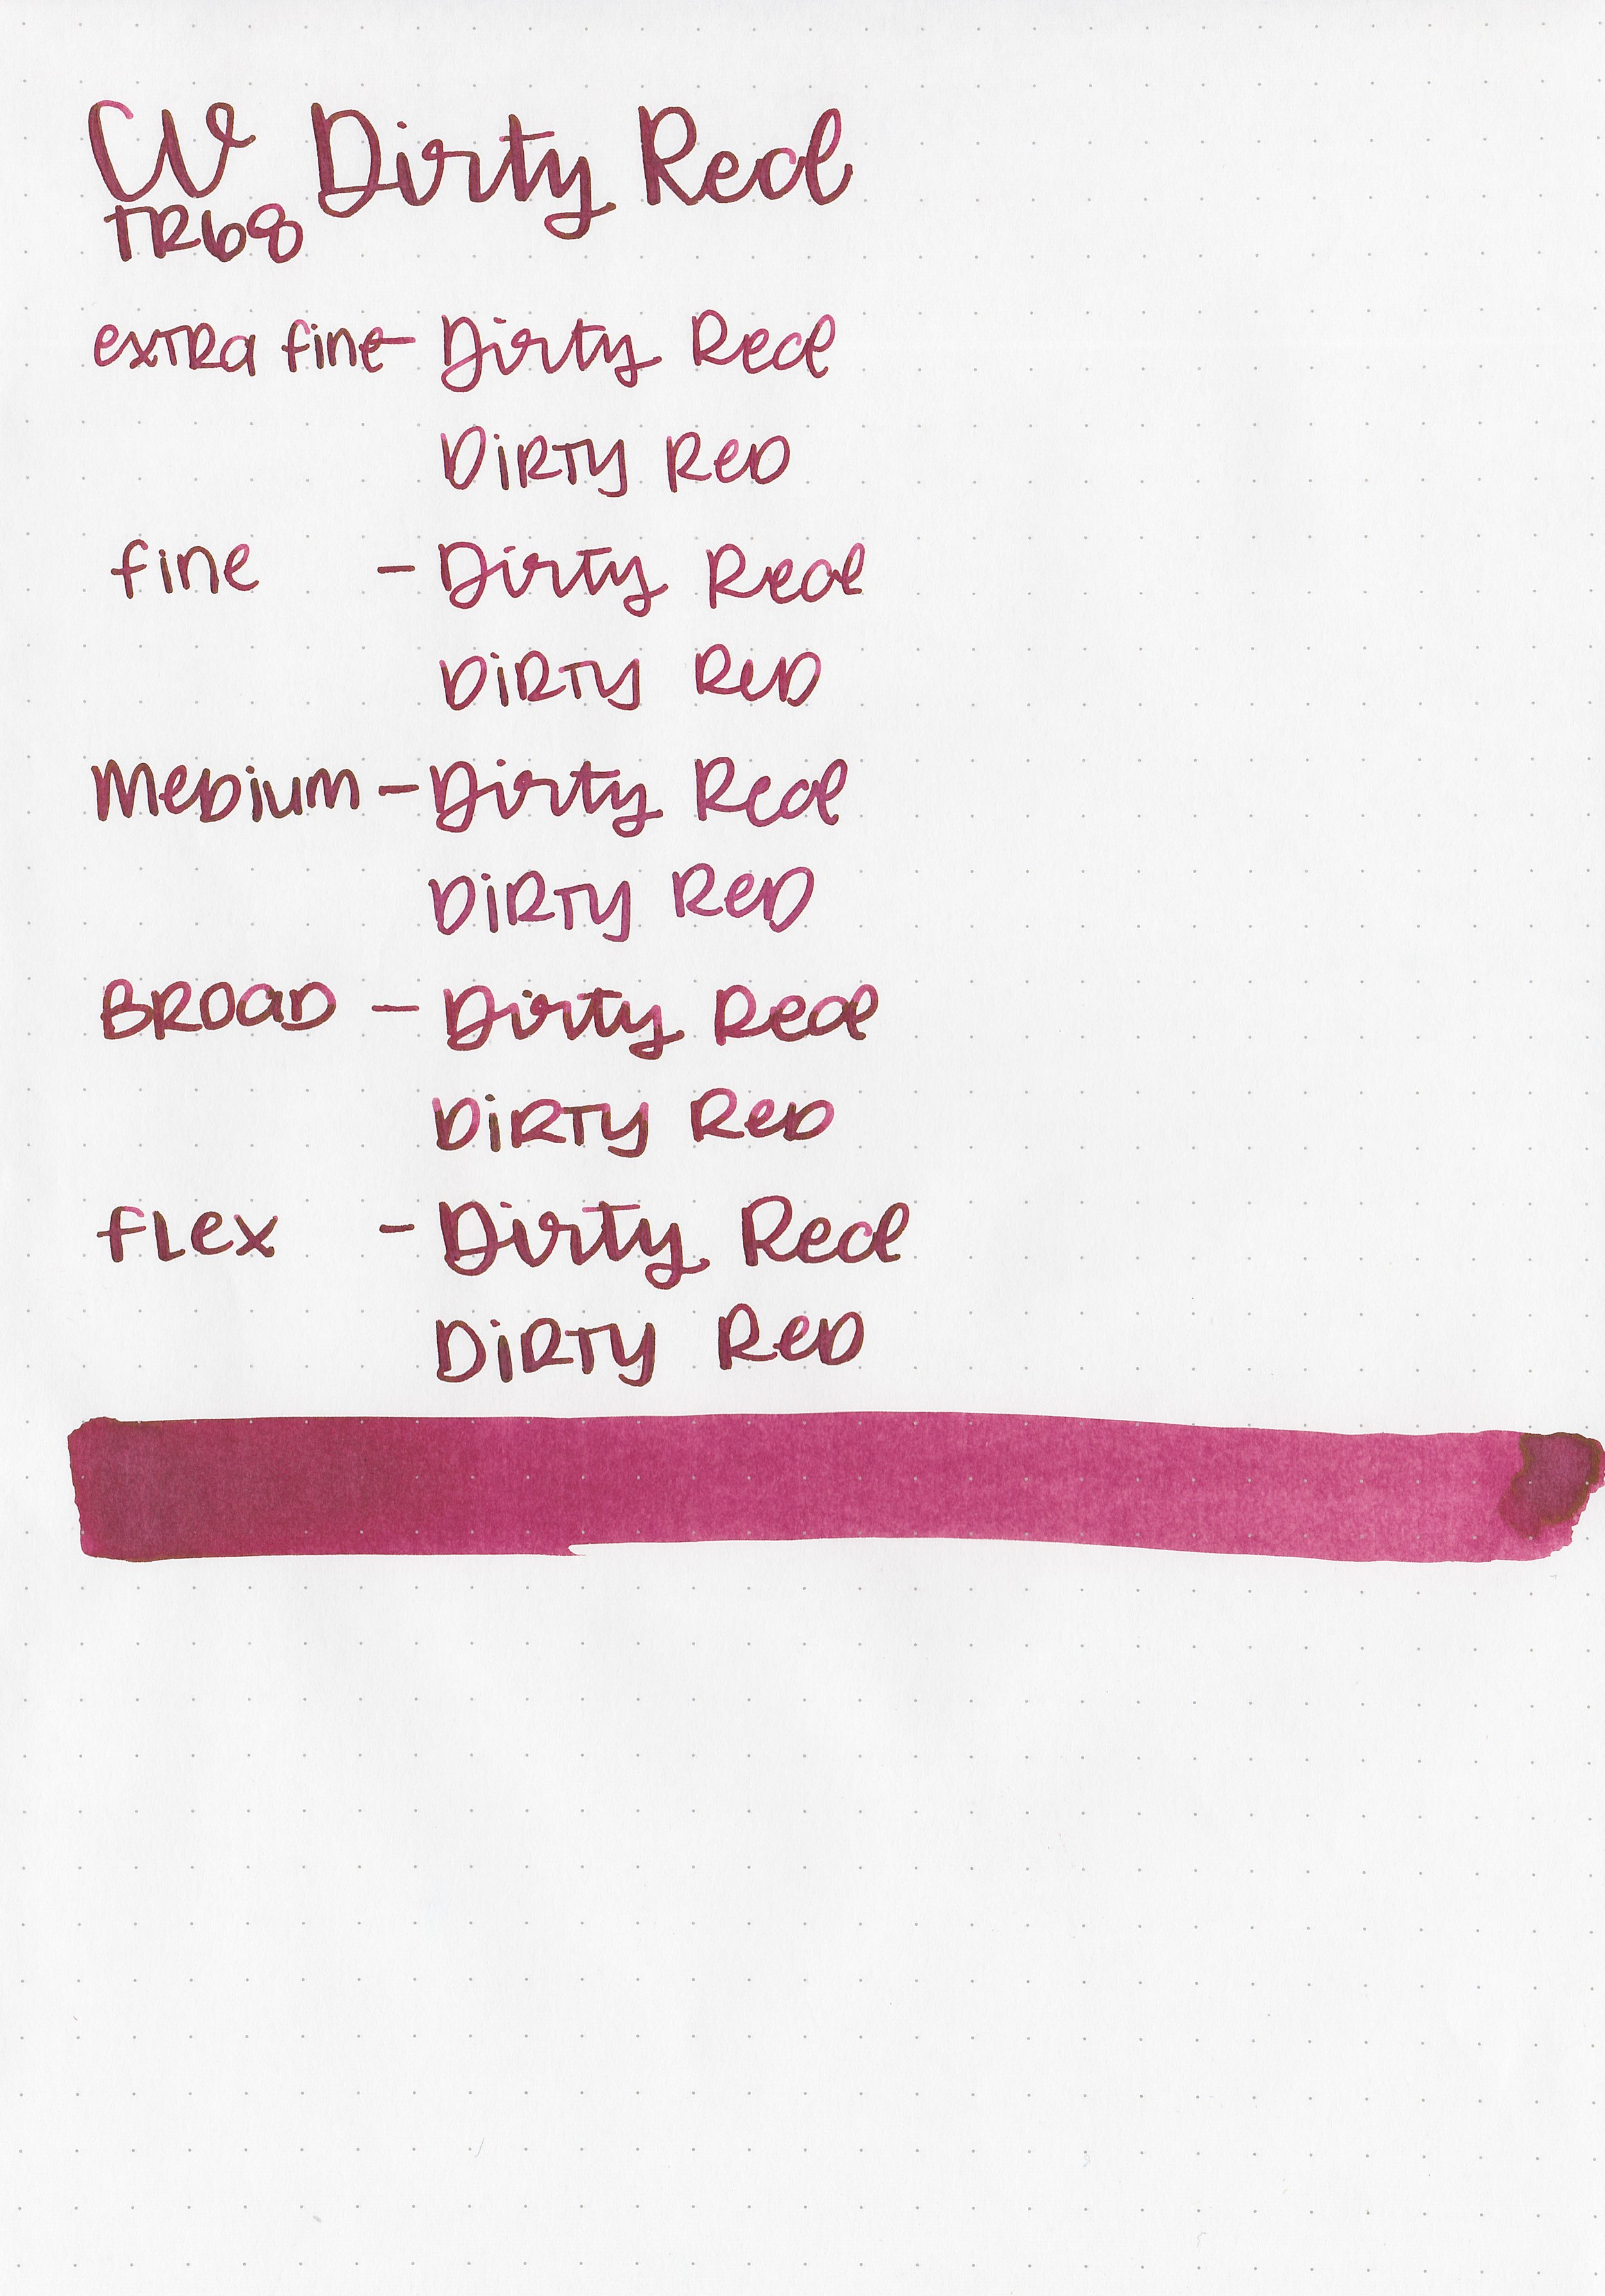 CW Dirty Red
TR68
extra fine - Dirty Red
DiRTy ReD
fine - Dirty Red
DiRTy ReD
MeDium - Dirty Red
DiRTy ReD
BROaD - Dirty Red
DiRTy ReD
fLex - Dirty Red
DiRTy ReD